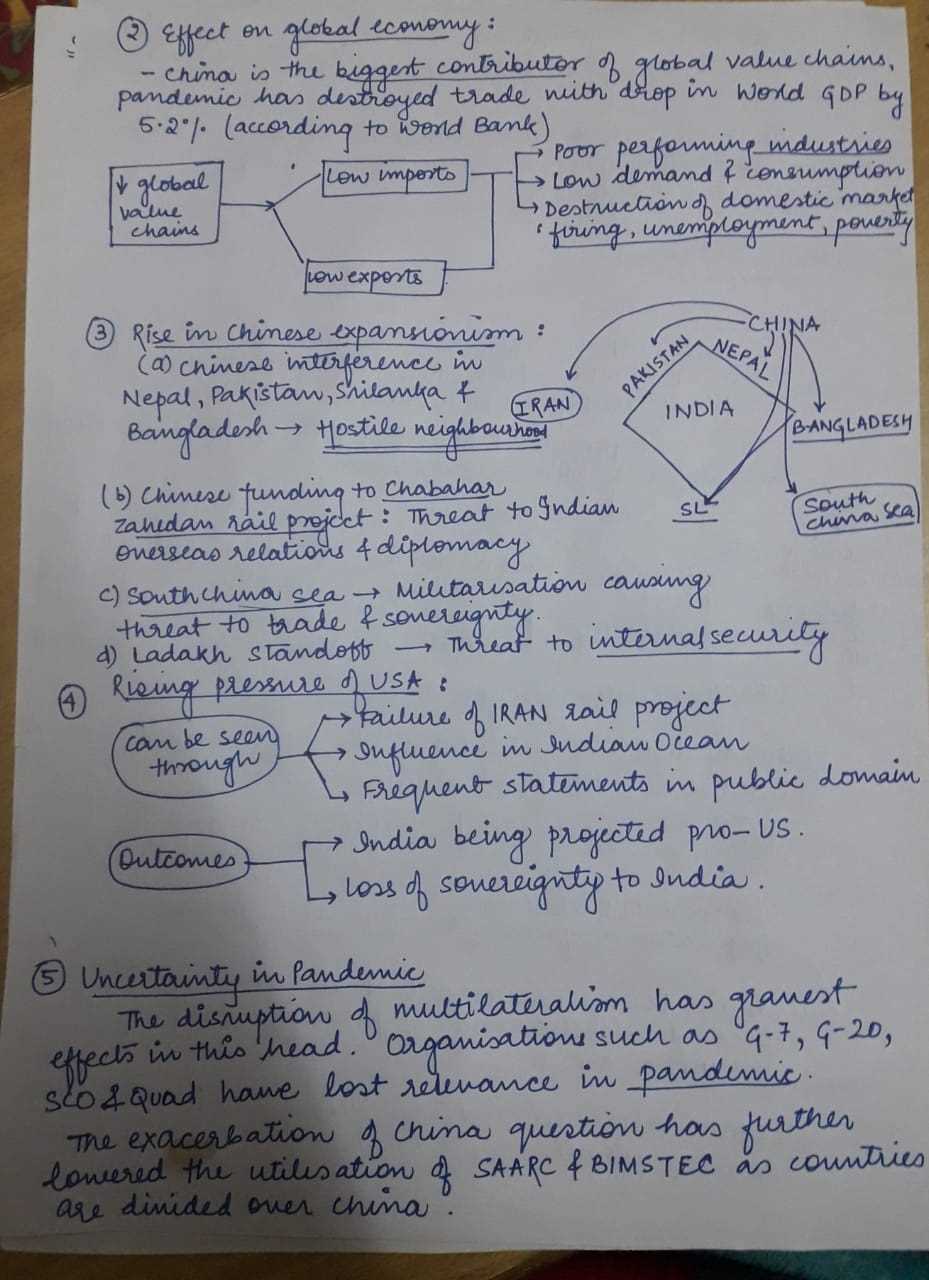 ② Effect on global economy :
- China is the biggest contributor of global value chains,
pandemic has destroyed trade with drop in World GDP by
5.2% (according to World Bank)
↓ global
value
chains
Low imports
Low exports
→ Poor performing industries
→ Low demand & consumption
→ Destruction of domestic market
: firing, unemployment, poverty
③ Rise in Chinese expansionism :
(a) Chinese interference in
Nepal, Pakistan, Srilanka &
Bangladesh → Hostile neighbourhood
CHINA
PAKISTAN
NEPAL
IRAN
INDIA
BANGLADESH
SL
South
China Sea
(b) Chinese funding to Chabahar
Zahedan rail project : Threat to Indian
overseas relations & diplomacy
c) South China sea → Militarisation causing
threat to trade & sovereignty.
d) Ladakh standoff → Threat to internal security
④ Rising pressure of USA :
can be seen
through
→ Failure of IRAN rail project
→ Influence in Indian Ocean
→ Frequent statements in public domain
Outcomes
→ India being projected pro-US.
→ Loss of sovereignty to India.
⑤ Uncertainty in Pandemic
The disruption of multilateralism has gravest
effects in this head. Organisations such as G-7, G-20,
SCO & Quad have lost relevance in pandemic.
The exacerbation of China question has further
lowered the utilisation of SAARC & BIMSTEC as countries
are divided over China.